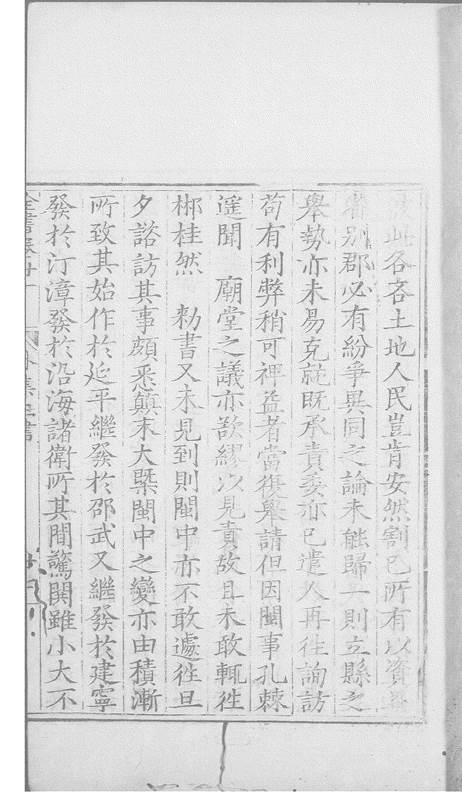 彼此各吝土地人民豈肯安然割己所有以資異
省別郡必有紛爭異同之論未能歸一則立縣之
舉勢亦未易克就既承責委亦已遣人再徃詢訪
苟有利弊稍可裨益者當復舉請但因閩事孔棘
遥聞 廟堂之議亦欲繆以見責故且未敢輒徃
郴桂然 勑書又未見到則閩中亦不敢遽徃旦
夕諮訪其事頗悉顛末大槩閩中之變亦由積漸
所致其始作於延平繼發於邵武又繼發於建寧
發於汀漳發於沿海諸衛所其間驚閧雖小大不